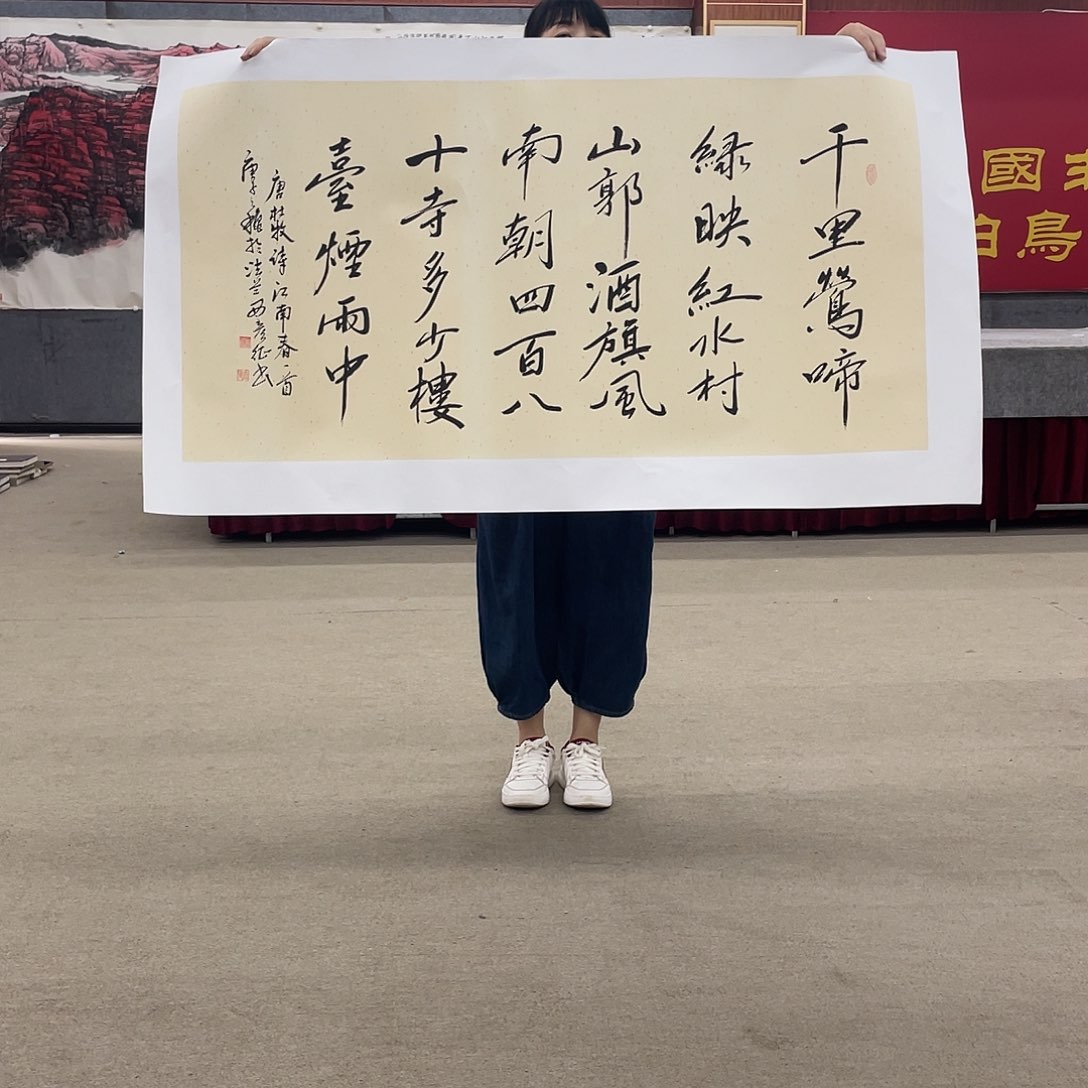 千里鶯啼
緑映紅水村
山郭酒旗風
南朝四百八
十寺多少樓
臺煙雨中
唐杜牧诗江南春一首
於法兰西
國
鳥